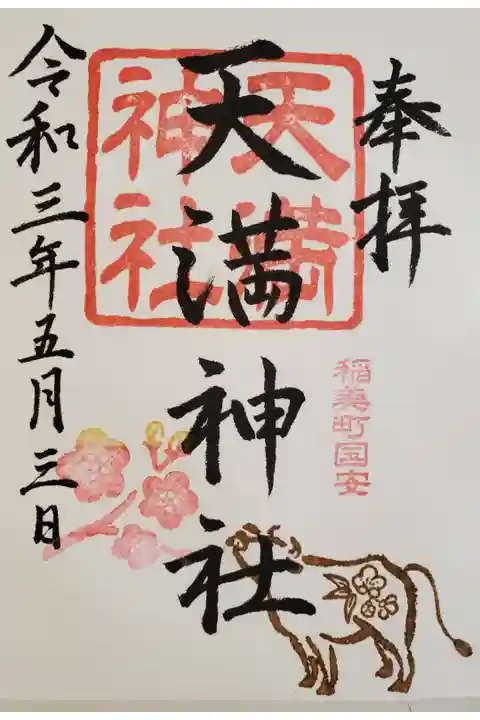 奉拝
稲美町国安
天満神社
天満神社
令和三年五月三日